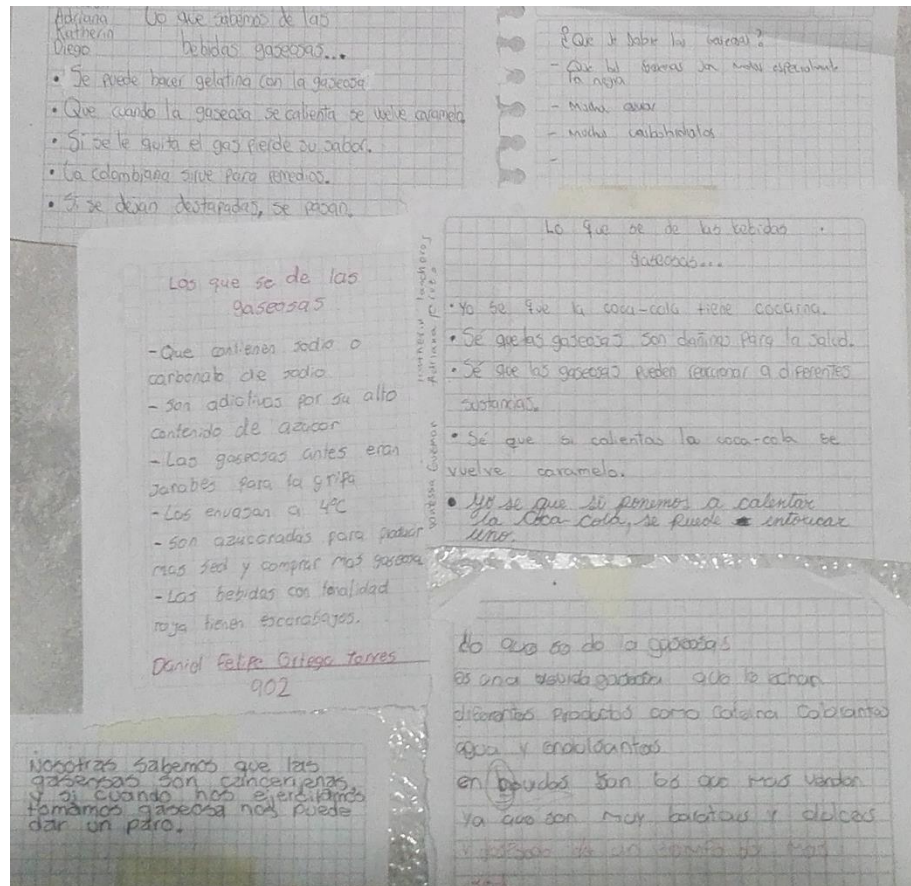 Adriana Lo que sabemos de las
Katherin
Diego bebidas gaseosas...
• Se puede hacer gelatina con la gaseosa
• Que cuando la gaseosa se calienta se vuelve caramelo
• Si se le quita el gas pierde su sabor.
• La colombiana sirve para remedios.
• Si se dejan destapadas, se pasan.
¿Que se sabe las
- Que las son malas especialmente
la negra
- Mucha azucar
- Muchos
-
Los que se de las
gaseosas
- Que contienen sodio o
carbonato de sodio
- Son adictivas por su alto
contenido de azucar
- Las gaseosas antes eran
Jarabes para la gripa
- Las envasan a 4°C
- Son azucaradas para producir
mas sed y comprar mas gaseosa
- Las bebidas con tonalidad
roja tienen escarabajos.
Daniel Felipe Ortega Torres
902
Adriana
Vanessa
Lo que se de las bebidas
gaseosas...
• Yo se que la coca-cola tiene cocaina.
• Sé que las gaseosas son dañinas para la salud.
• Sé que las gaseosas pueden reaccionar a diferentes
sustancias.
• Sé que si calientas la coca-cola se
vuelve caramelo.
• Yo se que si ponemos a calentar
la Coca-Cola, se puede intoxicar
uno.
Nosotras sabemos que las
gaseosas son cancerijenas
y si cuando nos ejercitamos
tomamos gaseosa nos puede
dar un paro.
lo que se de la gaseosas
es una que le echan
diferentes productos como Cafeina Colorantes
agua y
en son las que mas venden
ya que son muy baratas y dulces